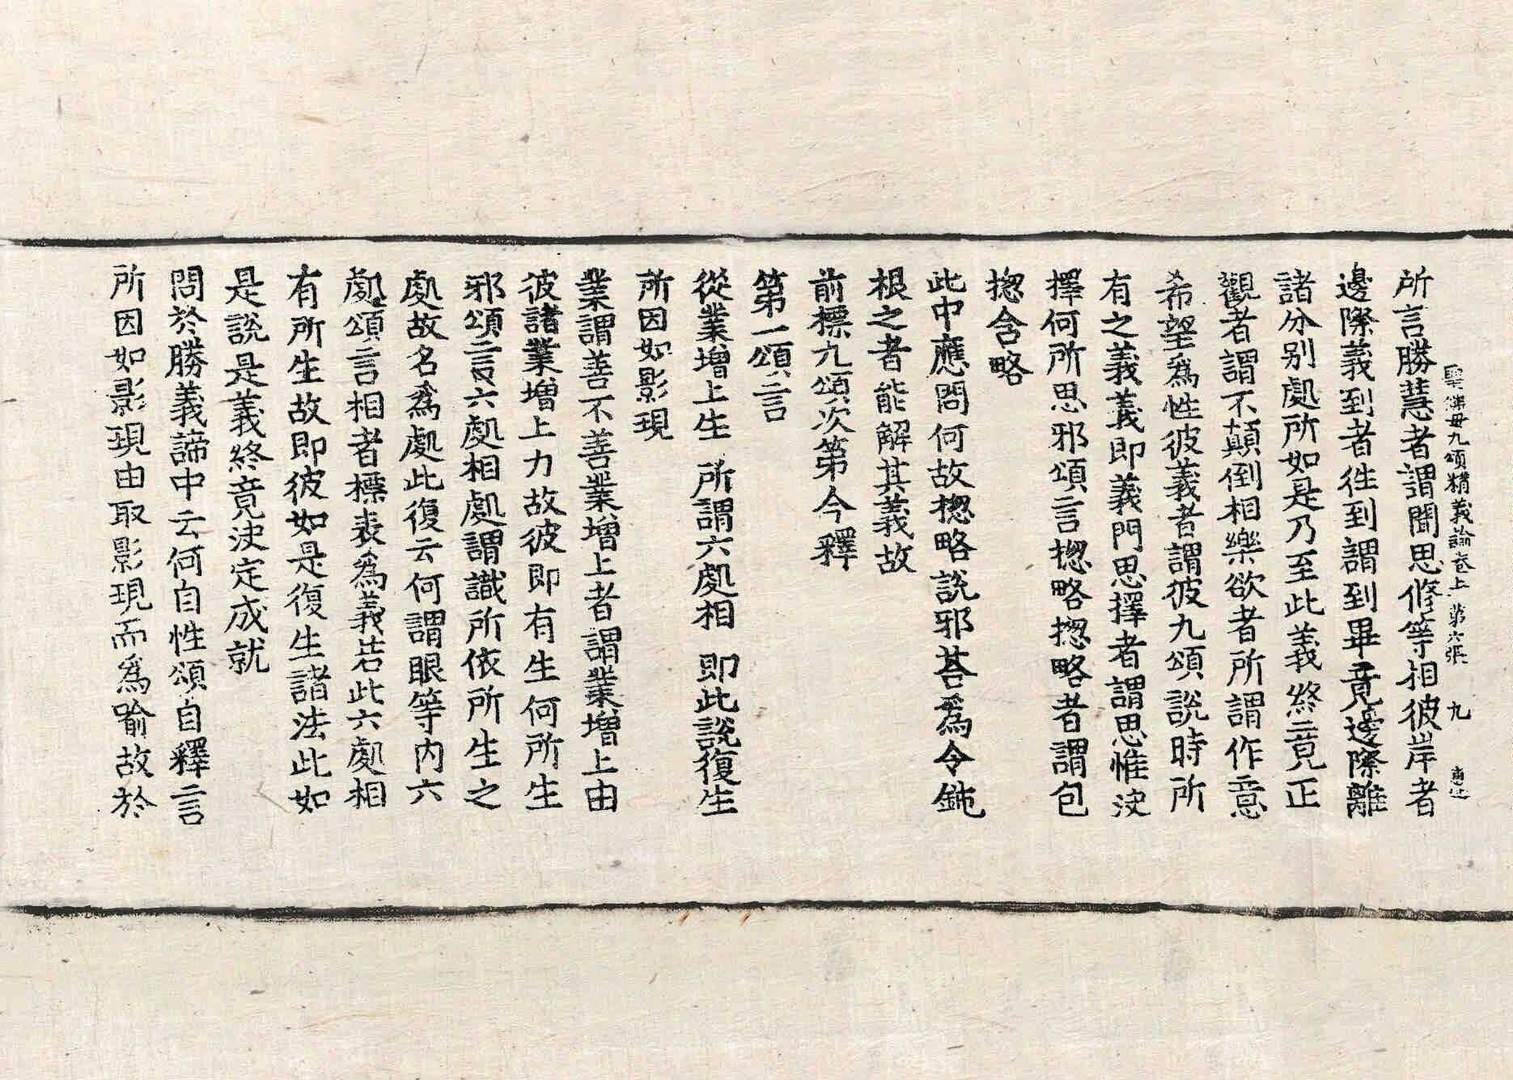 聖佛母九頌精義論卷上 第六張 九
所言勝慧者謂聞思修等相彼岸者
邊際義到者往到謂到畢竟邊際離
諸分別處所如是乃至此義終竟正
觀者謂不顛倒相樂欲者所謂作意
希望為性彼義者謂彼九頌說時所
有之義義即義門思擇者謂思惟決
擇何所思邪頌言揔略揔略者謂包
揔含略
此中應問何故揔略說邪荅為令鈍
根之者能解其義故
前標九頌次第今釋
第一頌言
從業增上生 所謂六處相 即此說復生
所因如影現
業謂善不善業增上者謂業增上由
彼諸業增上力故彼即有生何所生
邪頌言六處相處謂識所依所生之
處故名為處此復云何謂眼等內六
處頌言相者標表為義若此六處相
有所生故即彼如是復生諸法此如
是說是義終竟決定成就
問於勝義諦中云何自性頌自釋言
所因如影現由取影現而為喻故於